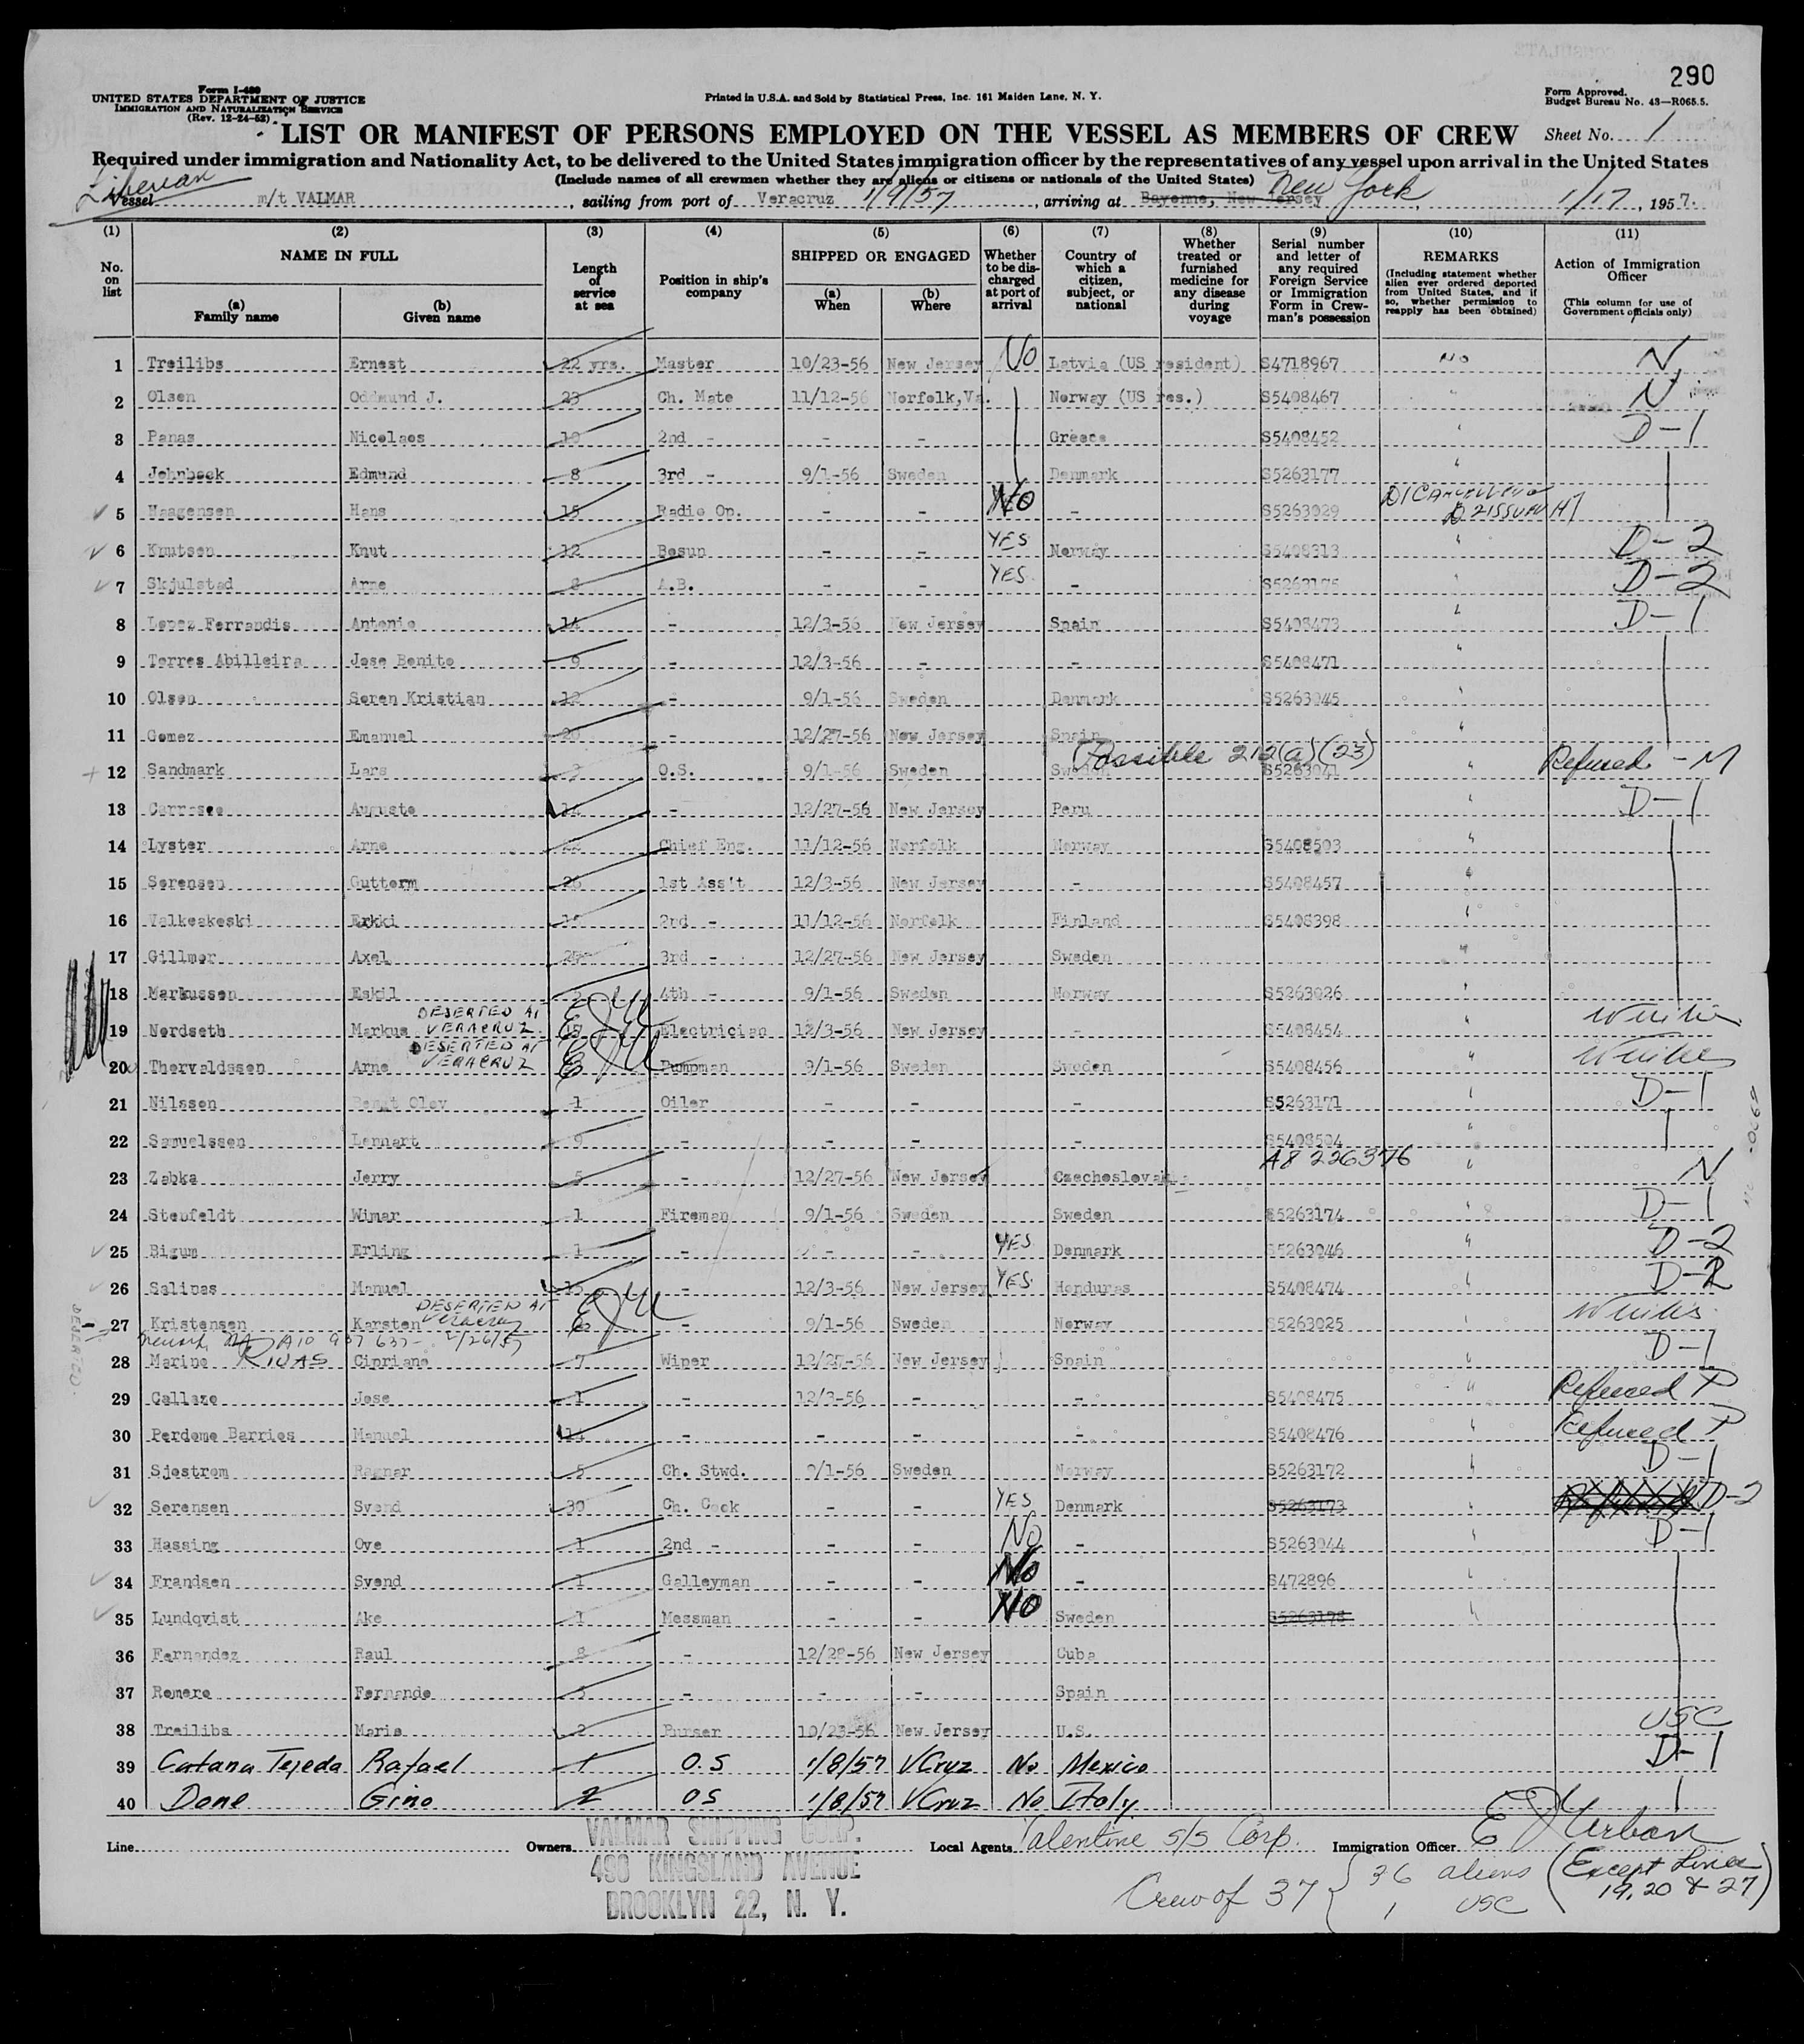 290
Form I-480
UNITED STATES DEPARTMENT OF JUSTICE
IMMIGRATION AND NATURALIZATION SERVICE
(Rev. 12-24-52)
Printed in U.S.A. and Sold by Statistical Press, Inc. 161 Maiden Lane, N. Y.
Form Approved.
Budget Bureau No. 43—R065.5.
LIST OR MANIFEST OF PERSONS EMPLOYED ON THE VESSEL AS MEMBERS OF CREW Sheet No. 1
Required under immigration and Nationality Act, to be delivered to the United States immigration officer by the representatives of any vessel upon arrival in the United States
(Include names of all crewmen whether they are aliens or citizens or nationals of the United States)
Liberian
Vessel m/t VALMAR, sailing from port of Veracruz 1/9/57, arriving at Bayonne, New Jersey New York 1/17, 1957.
(1) (2) (3) (4) (5) (6) (7) (8) (9) (10) (11)
No. on list
NAME IN FULL
(a) Family name
(b) Given name
Length of service at sea
Position in ship's company
SHIPPED OR ENGAGED
(a) When
(b) Where
Whether to be discharged at port of arrival
Country of which a citizen, subject, or national
Whether treated or furnished medicine for any disease during voyage
Serial number and letter of any required Foreign Service or Immigration Form in Crewman's possession
REMARKS
(Including statement whether alien ever ordered deported from United States, and if so, whether permission to reapply has been obtained)
Action of Immigration Officer
(This column for use of Government officials only)
1 Treilibs Ernest 22 yrs. Master 10/23-56 New Jersey No Latvia (US resident) S4718967 NO N
2 Olsen Oddmund J. 23 Ch. Mate 11/12-56 Norfolk,Va. Norway (US res.) S5408467 " N
3 Panas Nicolaos 10 2nd - - - Greece S5408452 " D-1
4 Johnbeck Edmund 8 3rd - 9/1-56 Sweden Denmark S5263177 "
5 Haagensen Hans 15 Radio Op. - - No - S5263029 D1 CANCELLED D2 ISSUED
6 Knutsen Knut 12 Bosun - - YES Norway S5408313 " D-2
7 Skjulstad Arne 8 A.B. - - YES - S5263175 " D-2
8 Lopez Ferrandis Antonio 14 - 12/3-56 New Jersey Spain S5408473 " D-1
9 Torres Abilleira Jose Benito 9 - 12/3-56 - - S5408471 "
10 Olsen Soren Kristian 12 - 9/1-56 Sweden Denmark S5263045 "
11 Gomez Emanuel 20 - 12/27-56 New Jersey Spain "
Possible 212(a)(23)
12 Sandmark Lars 3 O.S. 9/1-56 Sweden Sweden S5263041 " Refused - M
13 Carrasco Augusto 14 - 12/27-56 New Jersey Peru " D-1
14 Lyster Arne 22 Chief Eng. 11/12-56 Norfolk Norway S5408503 "
15 Sorensen Gutterm 26 1st Ass't 12/3-56 New Jersey - S5408457 "
16 Valkeakeski Erkki 2nd - 11/12-56 Norfolk Finland S5408398 "
17 Gillmor Axel 25 3rd - 12/27-56 New Jersey Sweden "
18 Markussen Eskil 4th - 9/1-56 Sweden Norway S5263026 "
19 Nordseth Markus DESERTED AT VERACRUZ EJU Electrician 12/3-56 New Jersey - S5408454 "
20 Thorvaldssen Arne DESERTED AT VERACRUZ EJU Pumpman 9/1-56 Sweden Sweden S5408456 "
21 Nilssen Bengt Olov 1 Oiler - - - S5263171 " D-1
22 Samuelssen Lennart 9 - - - - S5408504 "
A8 226376
23 Zabka Jerry 5 - 12/27-56 New Jersey Czechoslovak. " N
24 Stenfeldt Wimar 1 Fireman 9/1-56 Sweden Sweden S5263174 " D-1
25 Bigum Erling 1 - - - YES Denmark S5263046 " D-2
26 Salinas Manuel 15 - 12/3-56 New Jersey YES Honduras S5408474 " D-2
27 Kristensen Karsten DESERTED AT Veracruz EJU - 9/1-56 Sweden Norway S5263025 "
28 Marino RIVAS Cipriano 7 Wiper 12/27-56 New Jersey Spain " D-1
29 Callazo Jose 1 - 12/3-56 - - S5408475 " Refused P
30 Perdomo Barrios Manuel 14 - - - - S5408476 " Refused P
31 Sjostrom Ragnar 5 Ch. Stwd. 9/1-56 Sweden Norway S5263172 " D-1
32 Sorensen Svend 30 Ch. Cook - - YES Denmark S5263173 " D-2
33 Hassing Ove 1 2nd - - - No - S5263044 " D-1
34 Frandsen Svend 1 Galleyman - - No - S472896 "
35 Lundqvist Ake 1 Messman - - No Sweden S5263178 "
36 Fernandez Raul 8 - 12/28-56 New Jersey Cuba
37 Romero Fernando 5 - - - Spain
38 Treilibs Maris 2 Purser 10/23-56 New Jersey U.S. USC
39 Catana Tejeda Rafael 1 O.S 1/8/57 VCruz No Mexico D-1
40 Done Gino 2 OS 1/8/57 VCruz No Italy
Line Owners VALMAR SHIPPING CORP. Local Agents Valentine S/S Corp. Immigration Officer E J Urban
490 KINGSLAND AVENUE
BROOKLYN 22, N. Y.
Crew of 37 { 36 aliens (Except Lines 19, 20 & 27)
1 USC